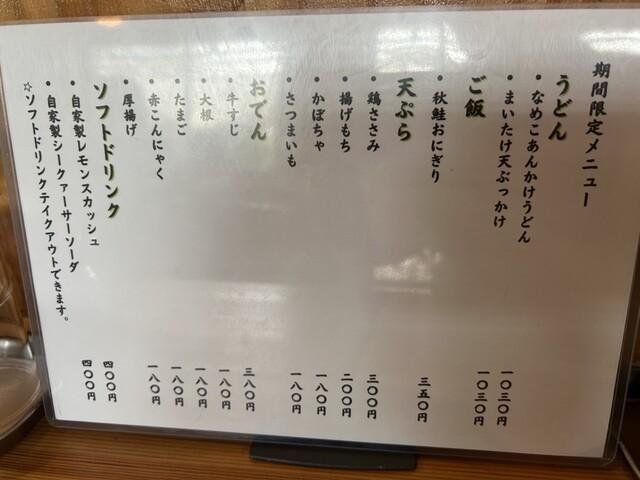 期間限定メニュー
うどん
・なめこあんかけうどん 一〇三〇円
・まいたけ天ぶっかけ 一〇三〇円
ご飯
・秋鮭おにぎり 三五〇円
天ぷら
・鶏ささみ 三〇〇円
・揚げもち 二〇〇円
・かぼちゃ 一八〇円
・さつまいも 一八〇円
おでん
・牛すじ 三八〇円
・大根 一八〇円
・たまご 一八〇円
・赤こんにゃく 一八〇円
・厚揚げ 一八〇円
ソフトドリンク
・自家製レモンスカッシュ 四〇〇円
・自家製シークァーサーソーダ 四〇〇円
☆ソフトドリンクテイクアウトできます。